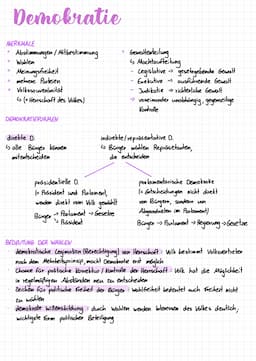 Demokratie
MERKMALE
Abstimmungen / Mitbestimmung
Wahlen
Meinungsfreiheit
mehrere Parteien
Volkssouveränität
↳ (= Herrschaft des Volkes)
Gewaltenteilung
↳ Machtaufteilung
- Legislative → gesetzgebende Gewalt
- Exekutive → ausführende Gewalt
- Judikative → richterliche Gewalt
→ voneinander unabhängig, gegenseitige
Kontrolle
DEMOKRATIEFORMEN
direkte D.
↳ alle Bürger können
mitentscheiden
indirekte/repräsentative D.
↳ Bürger wählen Repräsentanten,
die entscheiden
präsidentielle D.
↳ Präsident und Parlament,
werden direkt vom Volk gewählt
Bürger → Parlament → Gesetze
→ Präsident
parlamentarische Demokratie
↳ Entscheidungen nicht direkt
von Bürgern, sondern von
Abgeordneten im Parlament)
Bürger → Parlament → Regierung → Gesetze
BEDEUTUNG DER WAHLEN
demokratische Legitimation (Berechtigung) von Herrschaft: Volk bestimmt Volksvertreter
nach dem Mehrheitsprinzip, macht Demokratie erst möglich
Chance für politische Korrektur / Kontrolle der Herrschaft: Volk hat die Möglichkeit
in regelmäßigen Abständen neu zu entscheiden
Zeichen für politische Freiheit der Bürger: Wahlfreiheit bedeutet auch Freiheit nicht
zu wählen
demokrat. Willensbildung: durch Wahlen werden Interessen des Volkes deutlich,
wichtigste Form politischer Beteiligung